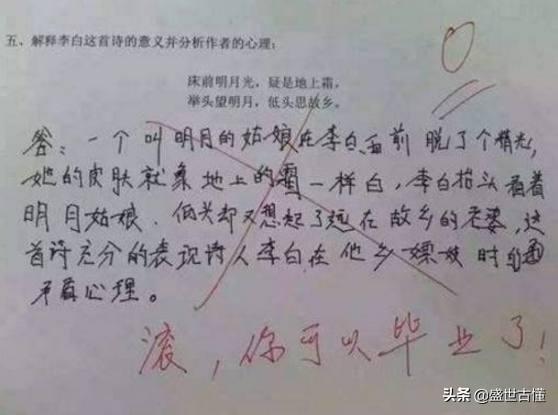 五、解释李白这首诗的意义并分析作者的心理：
床前明月光，疑是地上霜，
举头望明月，低头思故乡。
0
答：一个叫明月的姑娘在李白面前脱了个精光，
她的皮肤就象地上的霜一样白，李白抬头看着
明月姑娘、低头却又想起了远在故乡的老婆，这
首诗充分的表现诗人李白在他乡嫖妓时的
矛盾心理。
滚，你可以毕业了！
头条 @盛世古懂